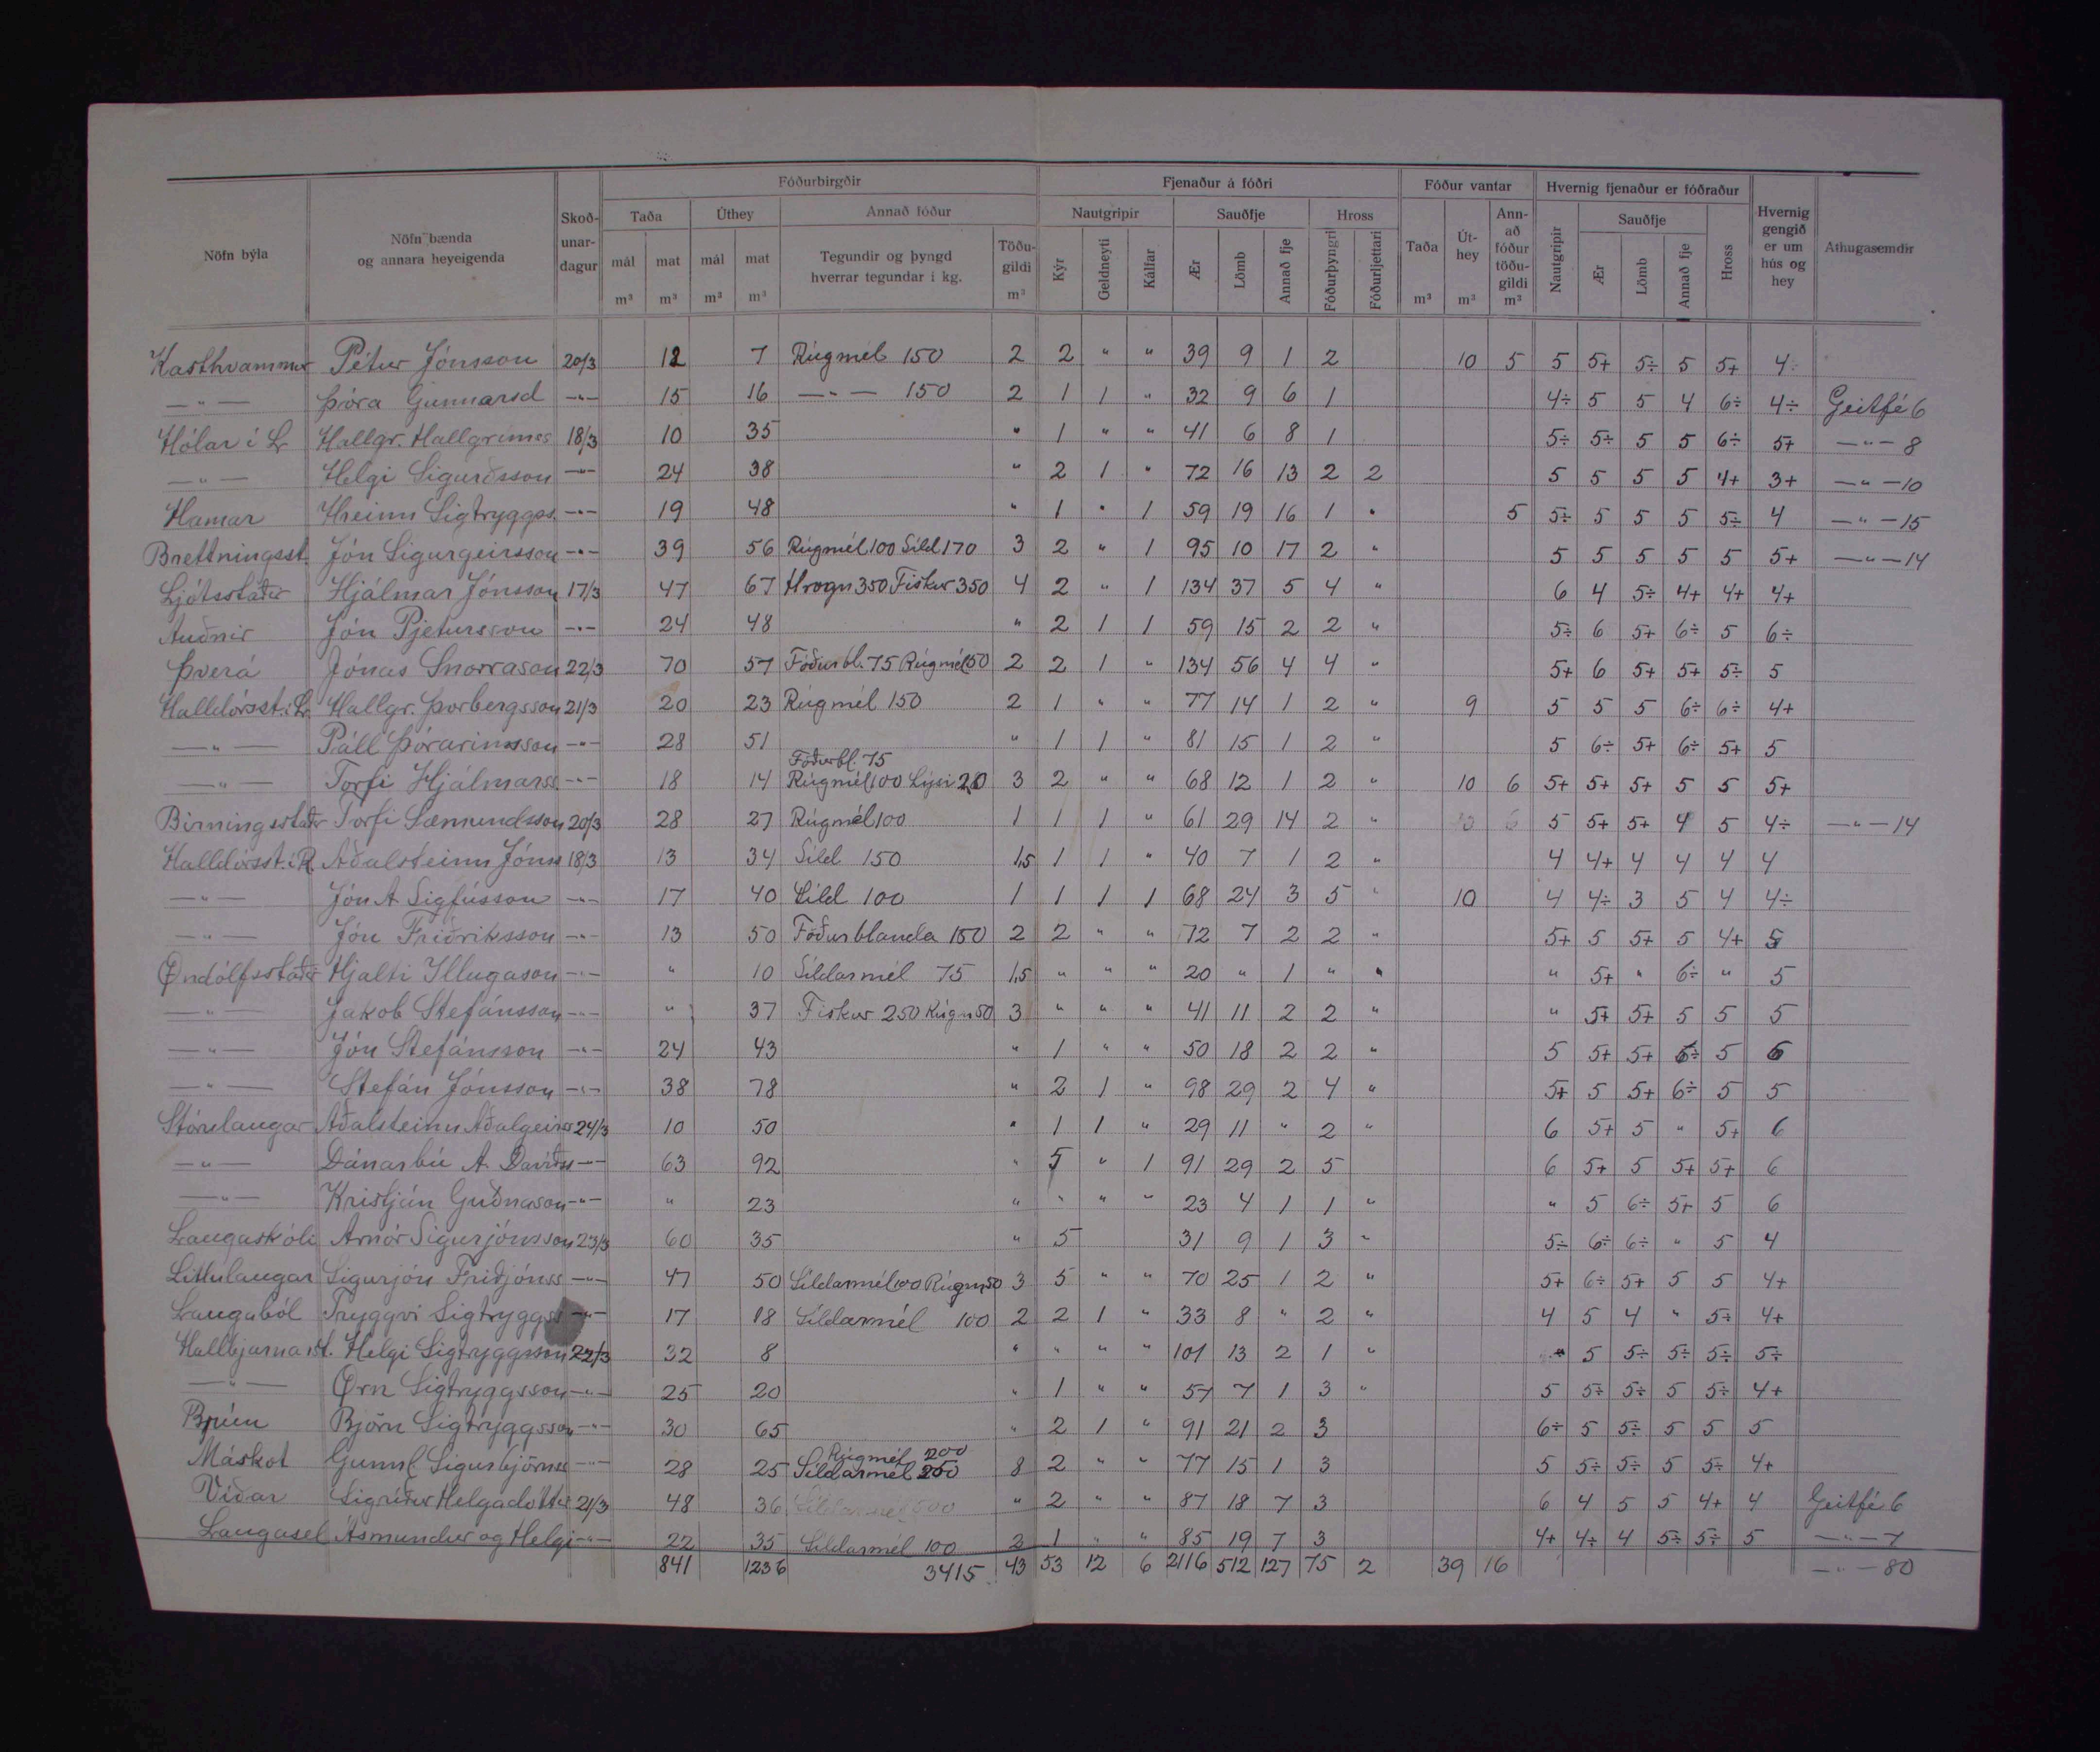 Fóðurbirgðir Fjenaður á fóðri Fóður vantar Hvernig fjenaður er fóðraður
Nöfn býla Nöfn bænda og annara heyeigenda Skoð-unar-dagur Taða Úthey Annað fóður Nautgripir Sauðfje Hross Taða Út-hey Ann-að fóður töðu-gildi m³ Nautgripir Sauðfje Hross Hvernig gengið er um hús og hey Athugasemdir
mál m³ mat m³ mál m³ mat m³ Tegundir og þyngd hverrar tegundar í kg. Töðu-gildi m³ Kýr Geldneyti Kálfar Ær Lömb Annað fje Fóðurþyngri Fóðurljettari m³ m³ Ær Lömb Annað fje
Kasthvammur Pétur Jónsson 20/3 12 7 Rúgmél 150 2 2 " " 39 9 1 2 10 5 5 5+ 5÷ 5 5+ 4
—"— Þóra Gunnarsd —"— 15 16 —"— 150 2 1 1 " 32 9 6 1 4÷ 5 5 4 6÷ 4÷ Geitfé 6
Hólar í L Hallgr. Hallgríms 18/3 10 35 " 1 " " 41 6 8 1 5÷ 5÷ 5 5 6÷ 5+ —"— 8
—"— Helgi Sigurðsson —"— 24 38 " 2 1 " 72 16 13 2 2 5 5 5 5 4+ 3+ —"— 10
Hamar Hreinn Sigtryggss. —"— 19 48 " 1 " 1 59 19 16 1 " 5 5÷ 5 5 5 5÷ 4 —"— 15
Brettningsst. Jón Sigurgeirsson —"— 39 56 Rúgmél 100 Síld 170 3 2 " 1 95 10 17 2 " 5 5 5 5 5 5+ —"— 14
Ljótsstaðir Hjálmar Jónsson 17/3 47 67 Hrogn 350 Fiskur 350 4 2 " 1 134 37 5 4 " 6 4 5÷ 4+ 4+ 4+
Auðnir Jón Pjetursson —"— 24 48 " 2 1 1 59 15 2 2 " 5÷ 6 5+ 6÷ 5 6÷
Þverá Jónas Snorrason 22/3 70 57 Fóðurbl. 75 Rúgmél 50 2 2 1 " 134 56 4 4 " 5+ 6 5+ 5+ 5÷ 5
Halldórsst. í L. Hallgr. Þorbergsson 21/3 20 23 Rúgmél 150 2 1 " " 77 14 1 2 " 9 5 5 5 6÷ 6÷ 4+
—"— Páll Þórarinsson —"— 28 51 " 1 1 " 81 15 1 2 " 5 6÷ 5+ 6÷ 5+ 5
Fóðurbl. 75
—"— Torfi Hjálmarss —"— 18 14 Rúgmél 100 Lýsi 20 3 2 " " 68 12 1 2 " 10 6 5+ 5+ 5+ 5 5 5+
Birningsstaðir Torfi Sæmundsson 20/3 28 27 Rúgmél 100 1 1 1 " 61 29 14 2 " 5 5+ 5+ 4 5 4÷ —"— 14
Halldórsst. í R. Aðalsteinn Jónss 18/3 13 34 Síld 150 1,5 1 1 " 40 7 1 2 " 4 4+ 4 4 4 4
—"— Jón A Sigfússon —"— 17 40 Síld 100 1 1 1 1 68 24 3 5 " 10 4 4÷ 3 5 4 4÷
—"— Jón Friðriksson —"— 13 50 Fóðurblanda 150 2 2 " " 72 7 2 2 " 5+ 5 5+ 5 4+ 5
Öndólfsstaðir Hjalti Illugason —"— " 10 Síldarmél 75 1,5 " " " 20 " 1 " " " 5+ " 6÷ " 5
—"— Jakob Stefánsson —"— " 37 Fiskur 250 Rúgm 50 3 " " " 41 11 2 2 " " 5+ 5+ 5 5 5
—"— Jón Stefánsson —"— 24 43 " 1 " " 50 18 2 2 " 5 5+ 5+ 6÷ 5 6
—"— Stefán Jónsson —"— 38 78 " 2 1 " 98 29 2 4 " 5+ 5 5+ 6÷ 5 5
Stórulaugar Aðalsteinn Aðalgeirs 24/3 10 50 " 1 1 " 29 11 " 2 " 6 5+ 5 " 5+ 6
—"— Dánarbú A. Davíðss —"— 63 92 " 5 " 1 91 29 2 5 6 5+ 5 5+ 5+ 6
—"— Kristján Guðnason —"— " 23 " " " " 23 4 1 1 " " 5 6÷ 5+ 5 6
Laugaskóli Arnór Sigurjónsson 23/3 60 35 " 5 31 9 1 3 " 5÷ 6÷ 6÷ " 5 4
Litlulaugar Sigurjón Friðjónss —"— 47 50 Síldarmél 100 Rúgm 50 3 5 " " 70 25 1 2 " 5+ 6÷ 5+ 5 5 4+
Laugaból Tryggvi Sigtryggss —"— 17 18 Síldarmél 100 2 2 1 " 33 8 " 2 " 4 5 4 " 5÷ 4+
Hallbjarnarst. Helgi Sigtryggsson 22/3 32 8 " " " " 101 13 2 1 " " 5 5÷ 5÷ 5÷ 5÷
—"— Örn Sigtryggsson —"— 25 20 " 1 " " 57 7 1 3 " 5 5÷ 5÷ 5 5÷ 4+
Brún Björn Sigtryggsson —"— 30 65 " 2 1 " 91 21 2 3 6÷ 5 5÷ 5 5 5
Rúgmél 200
Máskot Gunnl Sigurbjörnss —"— 28 25 Síldarmél 250 8 2 " " 77 15 1 3 5 5÷ 5÷ 5 5÷ 4+
Víðar Sigríður Helgadóttir 21/3 48 36 Síldarmél 500 " 2 " " 87 18 7 3 6 4 5 5 4+ 4 Geitfé 6
Laugasel Ásmundur og Helgi —"— 22 35 Síldarmél 100 2 1 " " 85 19 7 3 4+ 4÷ 4 5÷ 5÷ 5 —"— 7
841 1236 3415 43 53 12 6 2116 512 127 75 2 39 16 —"— 80